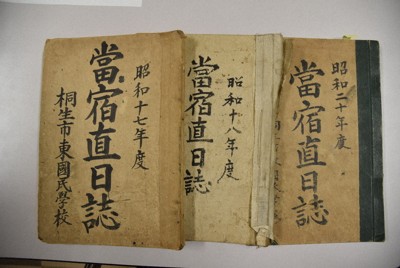 昭和十七年度
當宿直日誌
桐生市東國民學校
昭和十八年度
當宿直日誌
昭和二十年度
當宿直日誌